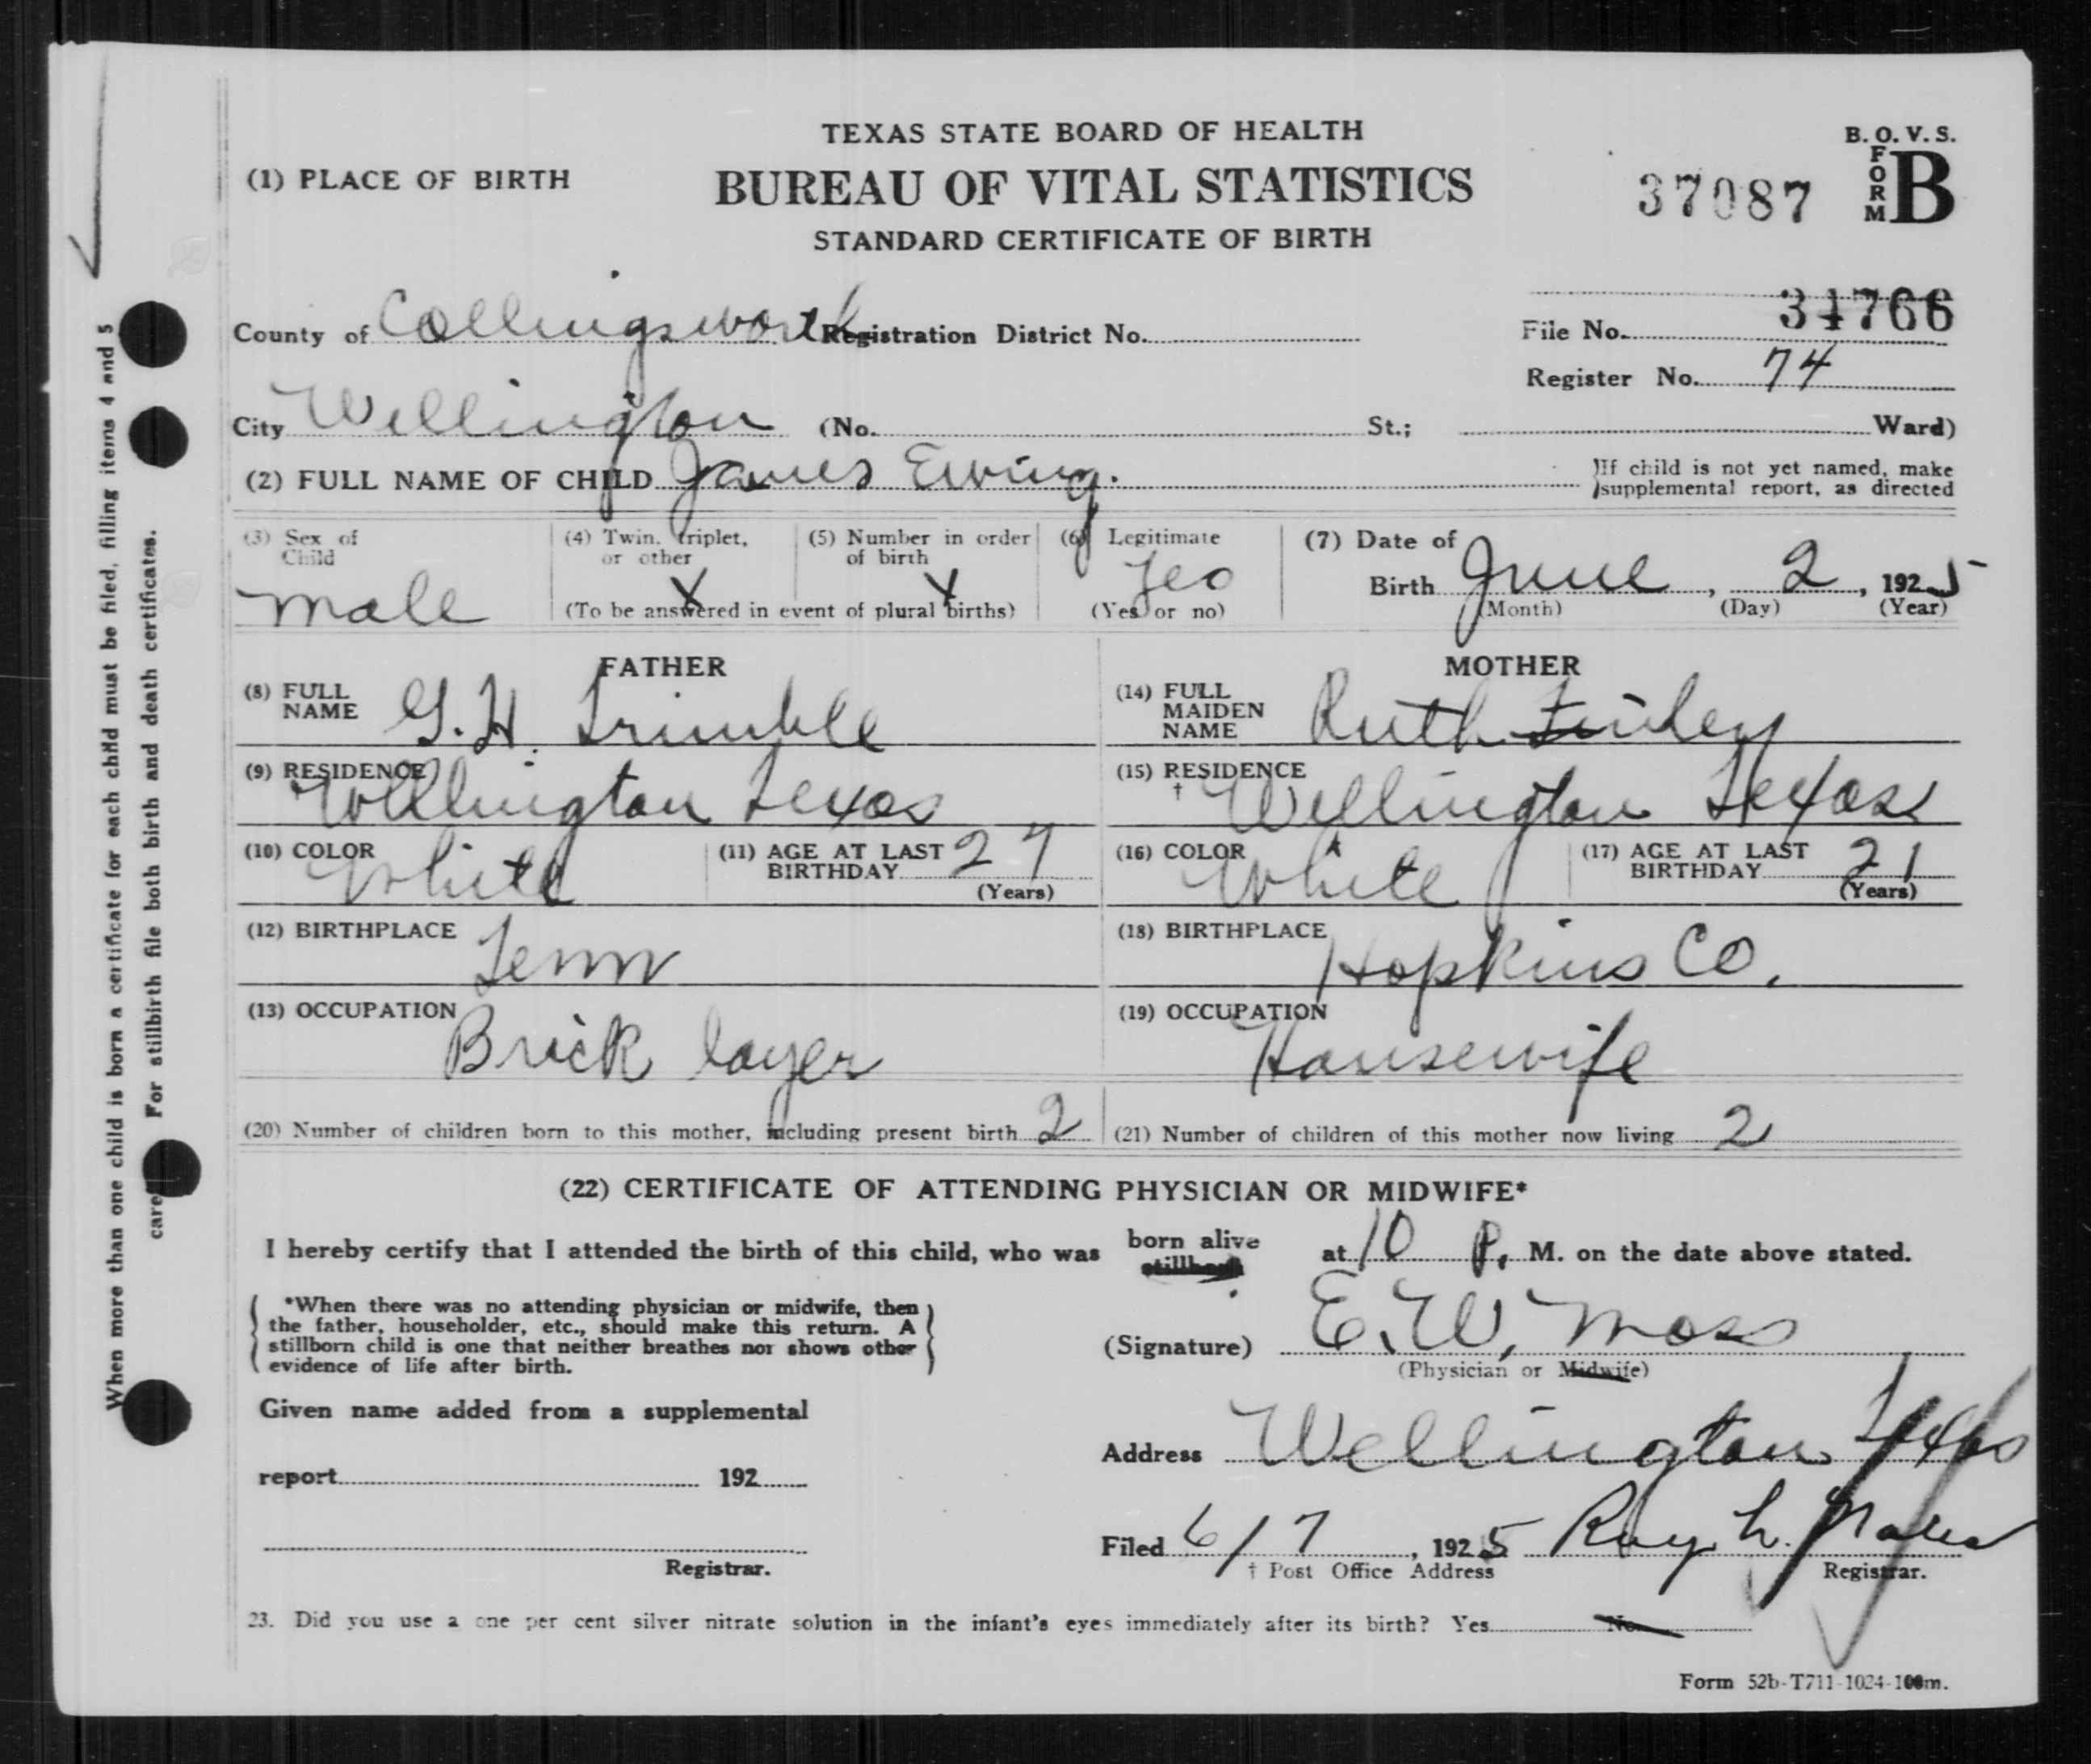 TEXAS STATE BOARD OF HEALTH
B. O. V. S.
(1) PLACE OF BIRTH
BUREAU OF VITAL STATISTICS
37087
FORM B
STANDARD CERTIFICATE OF BIRTH
County of Collingsworth Registration District No.
File No. 34766
Register No. 74
City Wellington (No. St.; Ward)
(2) FULL NAME OF CHILD James Ewing.
If child is not yet named, make
supplemental report, as directed
(3) Sex of Child
male
(4) Twin, triplet, or other
X
(5) Number in order of birth
X
(To be answered in event of plural births)
(6) Legitimate
Yes
(Yes or no)
(7) Date of
Birth June, 2, 1925
(Month) (Day) (Year)
FATHER
(8) FULL NAME G. H. Trimble
(9) RESIDENCE Wellington Texas
(10) COLOR White
(11) AGE AT LAST BIRTHDAY 27
(Years)
(12) BIRTHPLACE Tenn
(13) OCCUPATION Brick layer
MOTHER
(14) FULL MAIDEN NAME Ruth Finley
(15) RESIDENCE † Wellington Texas
(16) COLOR White
(17) AGE AT LAST BIRTHDAY 21
(Years)
(18) BIRTHPLACE Hopkins Co.
(19) OCCUPATION Housewife
(20) Number of children born to this mother, including present birth 2
(21) Number of children of this mother now living 2
(22) CERTIFICATE OF ATTENDING PHYSICIAN OR MIDWIFE*
I hereby certify that I attended the birth of this child, who was born alive stillborn at 10 P. M. on the date above stated.
*When there was no attending physician or midwife, then
the father, householder, etc., should make this return. A
stillborn child is one that neither breathes nor shows other
evidence of life after birth.
(Signature) E. W. Moss
(Physician or Midwife)
Given name added from a supplemental
report 192
Registrar.
Address Wellington Texas
Filed 6/7, 1925 Ray L.
† Post Office Address
Registrar.
23. Did you use a one per cent silver nitrate solution in the infant's eyes immediately after its birth? Yes No
Form 52b-T711-1024-100m.
When more than one child is born a certificate for each child must be filed, filling items 4 and 5
care For stillbirth file both birth and death certificates.